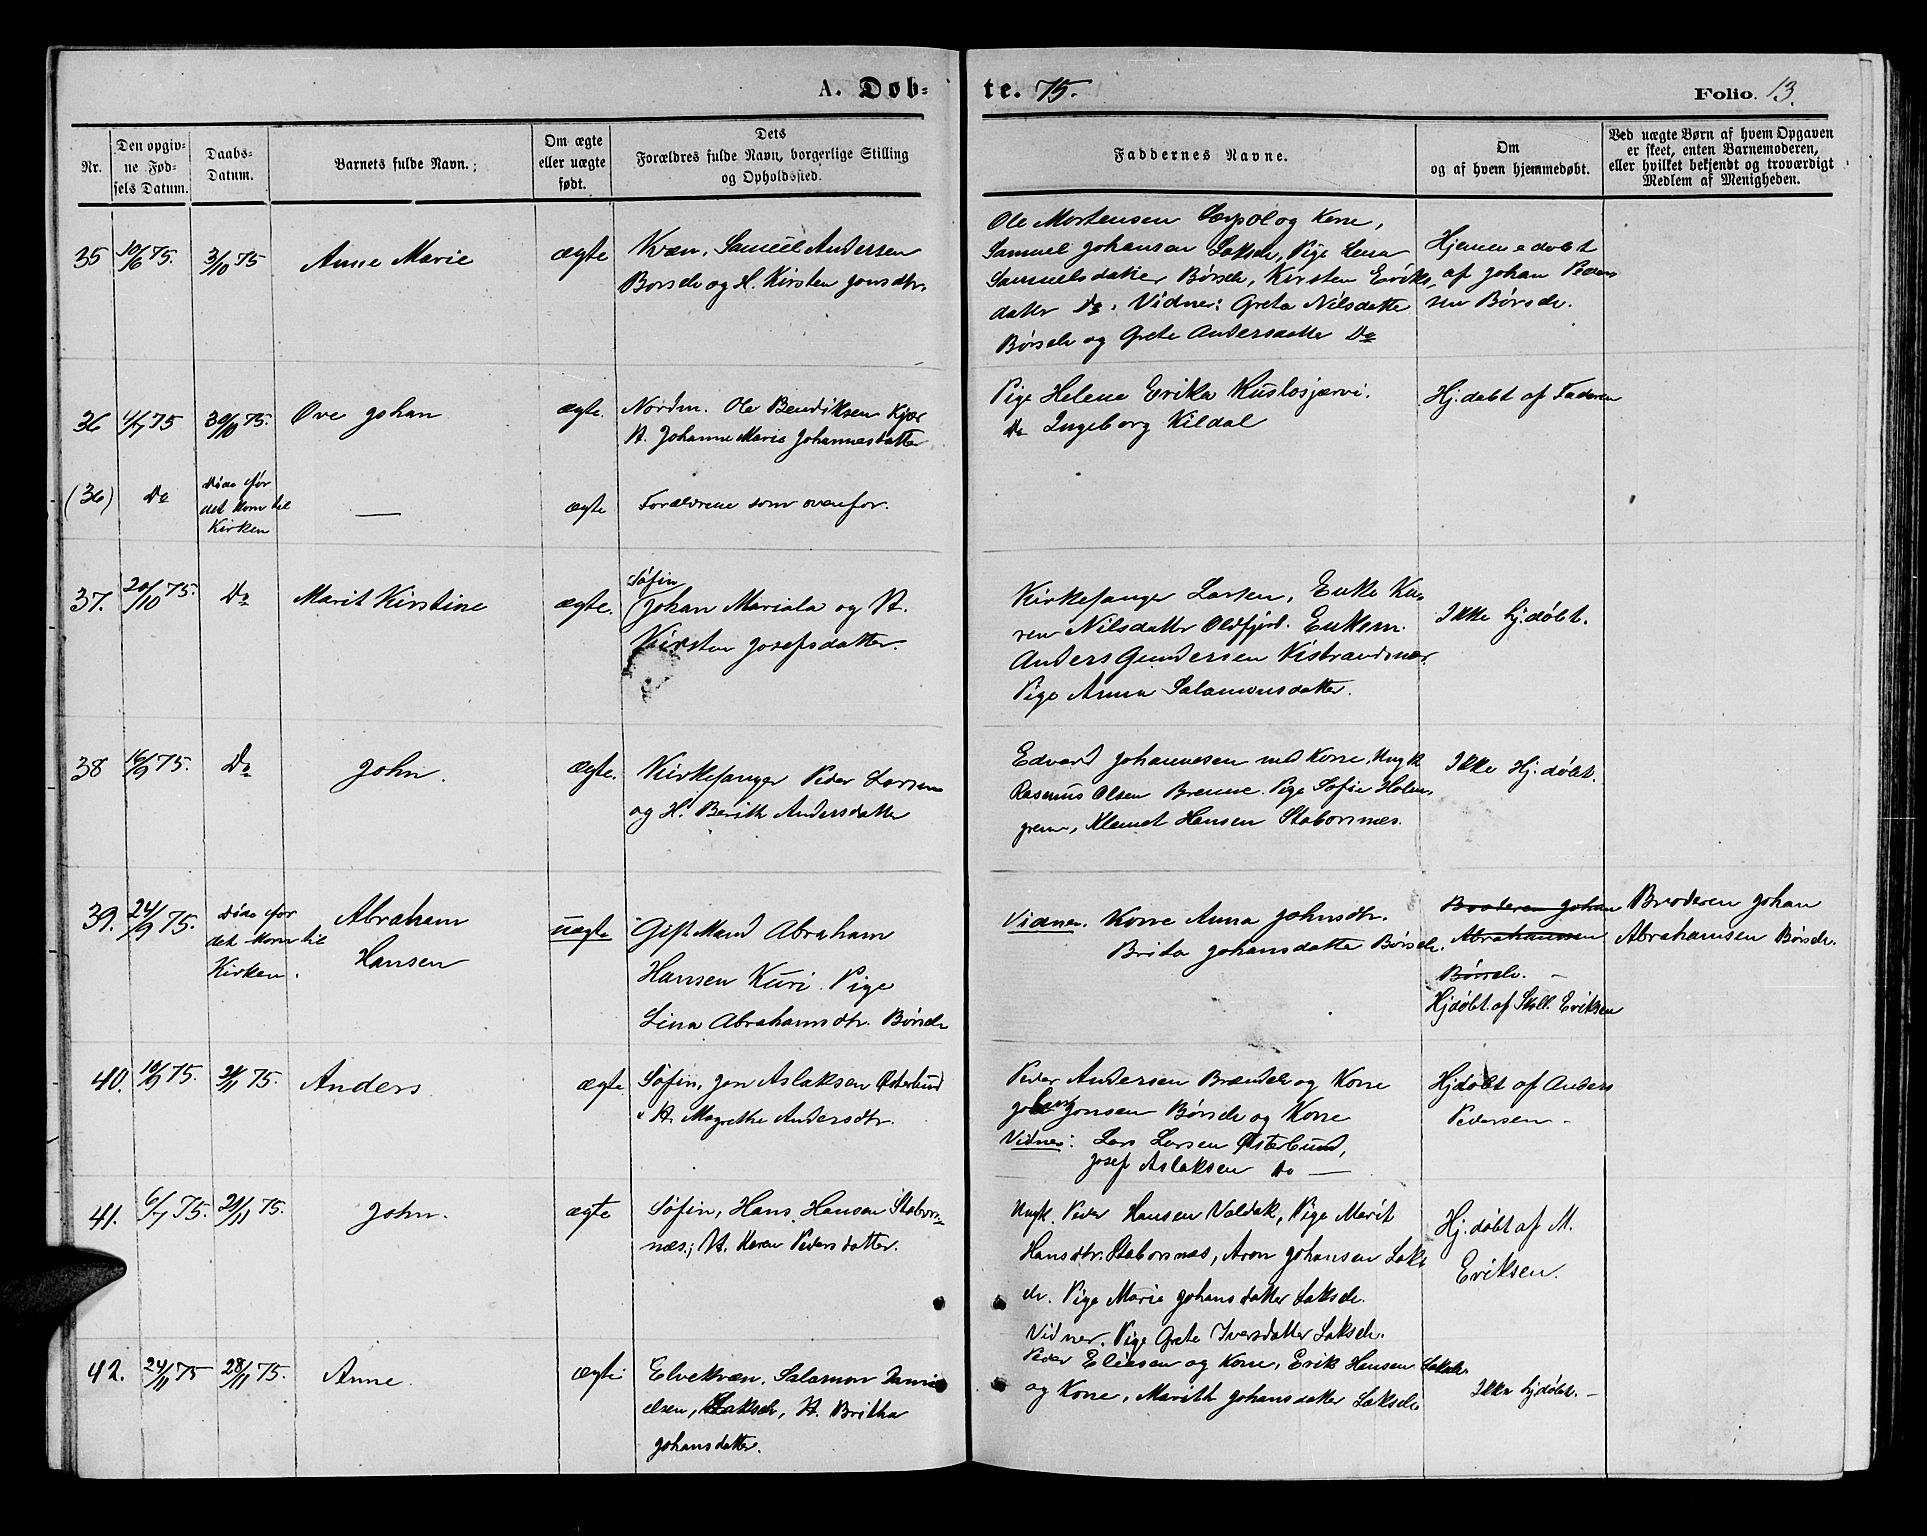 A. Døb=
te. 75.
Folio. 13.
Nr.
Den opgiv-
ne Fød-
sels Datum.
Daabs-
Datum.
Barnets fulde Navn.
Om ægte
eller uægte
født.
Dets
Forældres fulde Navn, borgerlige Stilling
og Opholdssted.
Faddernes Navne.
Om
og af hvem hjemmedøbt.
Ved uægte Børn af hvem Opgaven
er skeet, enten Barnemoderen,
eller hvilket bekjendt og troværdigt
Medlem af Menigheden.
35 10/6 75. 3/10 75 Anne Marie ægte
Kvæn, Samuel Andersen
Børselv og H. Kirsten Jonsdtr.
Ole Mortensen og Kone,
Samuel Johansen Lakselv, Pige Lena
Samuelsdatter Børselv, Kirsten Eriks,
datter Do. Vidner: Greta Nilsdatter
Børselv og Grete Andersdatter Do
Hjemmedøbt
af Johan Peder
sen Børselv.
36 4/7 75 30/10 75. Ove Johan ægte.
Nordm. Ole Bendiksen Kjær
H. Johanne Marie Johannesdatter
Pige Helene Erika Kuslosjærvi.
Do Ingeborg Kildal
Hj.døbt af Faderen
(36) Do
Døde før
det kom til
Kirken
—
ægte
Forældrene som ovenfor.
37. 20/10 75. Do Marit Kirstine ægte.
Søfin
Johan Mariala og H.
Kirsten Josefsdatter.
Kirkesanger Larsen, Enke Ka-
ren Nilsdatter Oldfjord. Enkem.
Anders Gundersen Kistrandsnær
Pige Anna Salamonsdatter.
Ikke hj.døbt.
38 16/9 75. Do John. ægte.
Kirkesanger Peder Larsen
og H. Berith Andersdatter
Edvard Johannesen med Kone, Ungk
Rasmus Olsen Brenne. Pige Sofie Holm-
gren, Klemet Hansen Staborsnæs.
Ikke Hj.døbt.
39. 24/9 75.
Døde før
det kom til
Kirken.
Abraham
Hansen
uægte
Gift Mand Abraham
Hansen Kuri. Pige
Lina Abrahamsdtr. Børselv
Vidner. Kone Anna Johnsdtr.
Brita Johansdatter Børselv.
Broderen Johan
Abrahamsen
Børselv. —
Hjdøbt. af Skoll. Eriksen
Broderen Johan
Abrahamsen Børselv.
40. 10/9 75. 21/11 75. Anders ægte
Søfin, Jon Aslaksen Østerbund
H. Magrethe Andersdtr.
Peder Andersen Brændelv og Kone
Johan Jonsen Børselv og Kone
Vidner: Lars Larsen Østerbund,
Josef Aslaksen Do —
Hjdøbt af Anders
Pedersen —
41. 6/7 75. 21/11 75. John. ægte
Søfin, Hans Hansen Stabors-
næs; H. Karen Pedersdatter.
Ungk. Peder Hansen Valdak, Pige Marit
Hansdtr. Staborsnæs, Aron Johansen Laks
elv. Pige Marie Johansdatter Lakselv.
Vidner. Pige Grete Iversdatter Lakselv.
Hj.døbt af M.
Eriksen.
42. 24/11 75 28/11 75. Anne. ægte
Elvekvæn, Salamon Dani
elsen, Lakselv, H. Britha
Johansdatter.
Peder Eliesen og Kone, Erik Hansen Lakselv.
og Kone, Marith Johansdatter Lakselv
Ikke hjdøbt. —